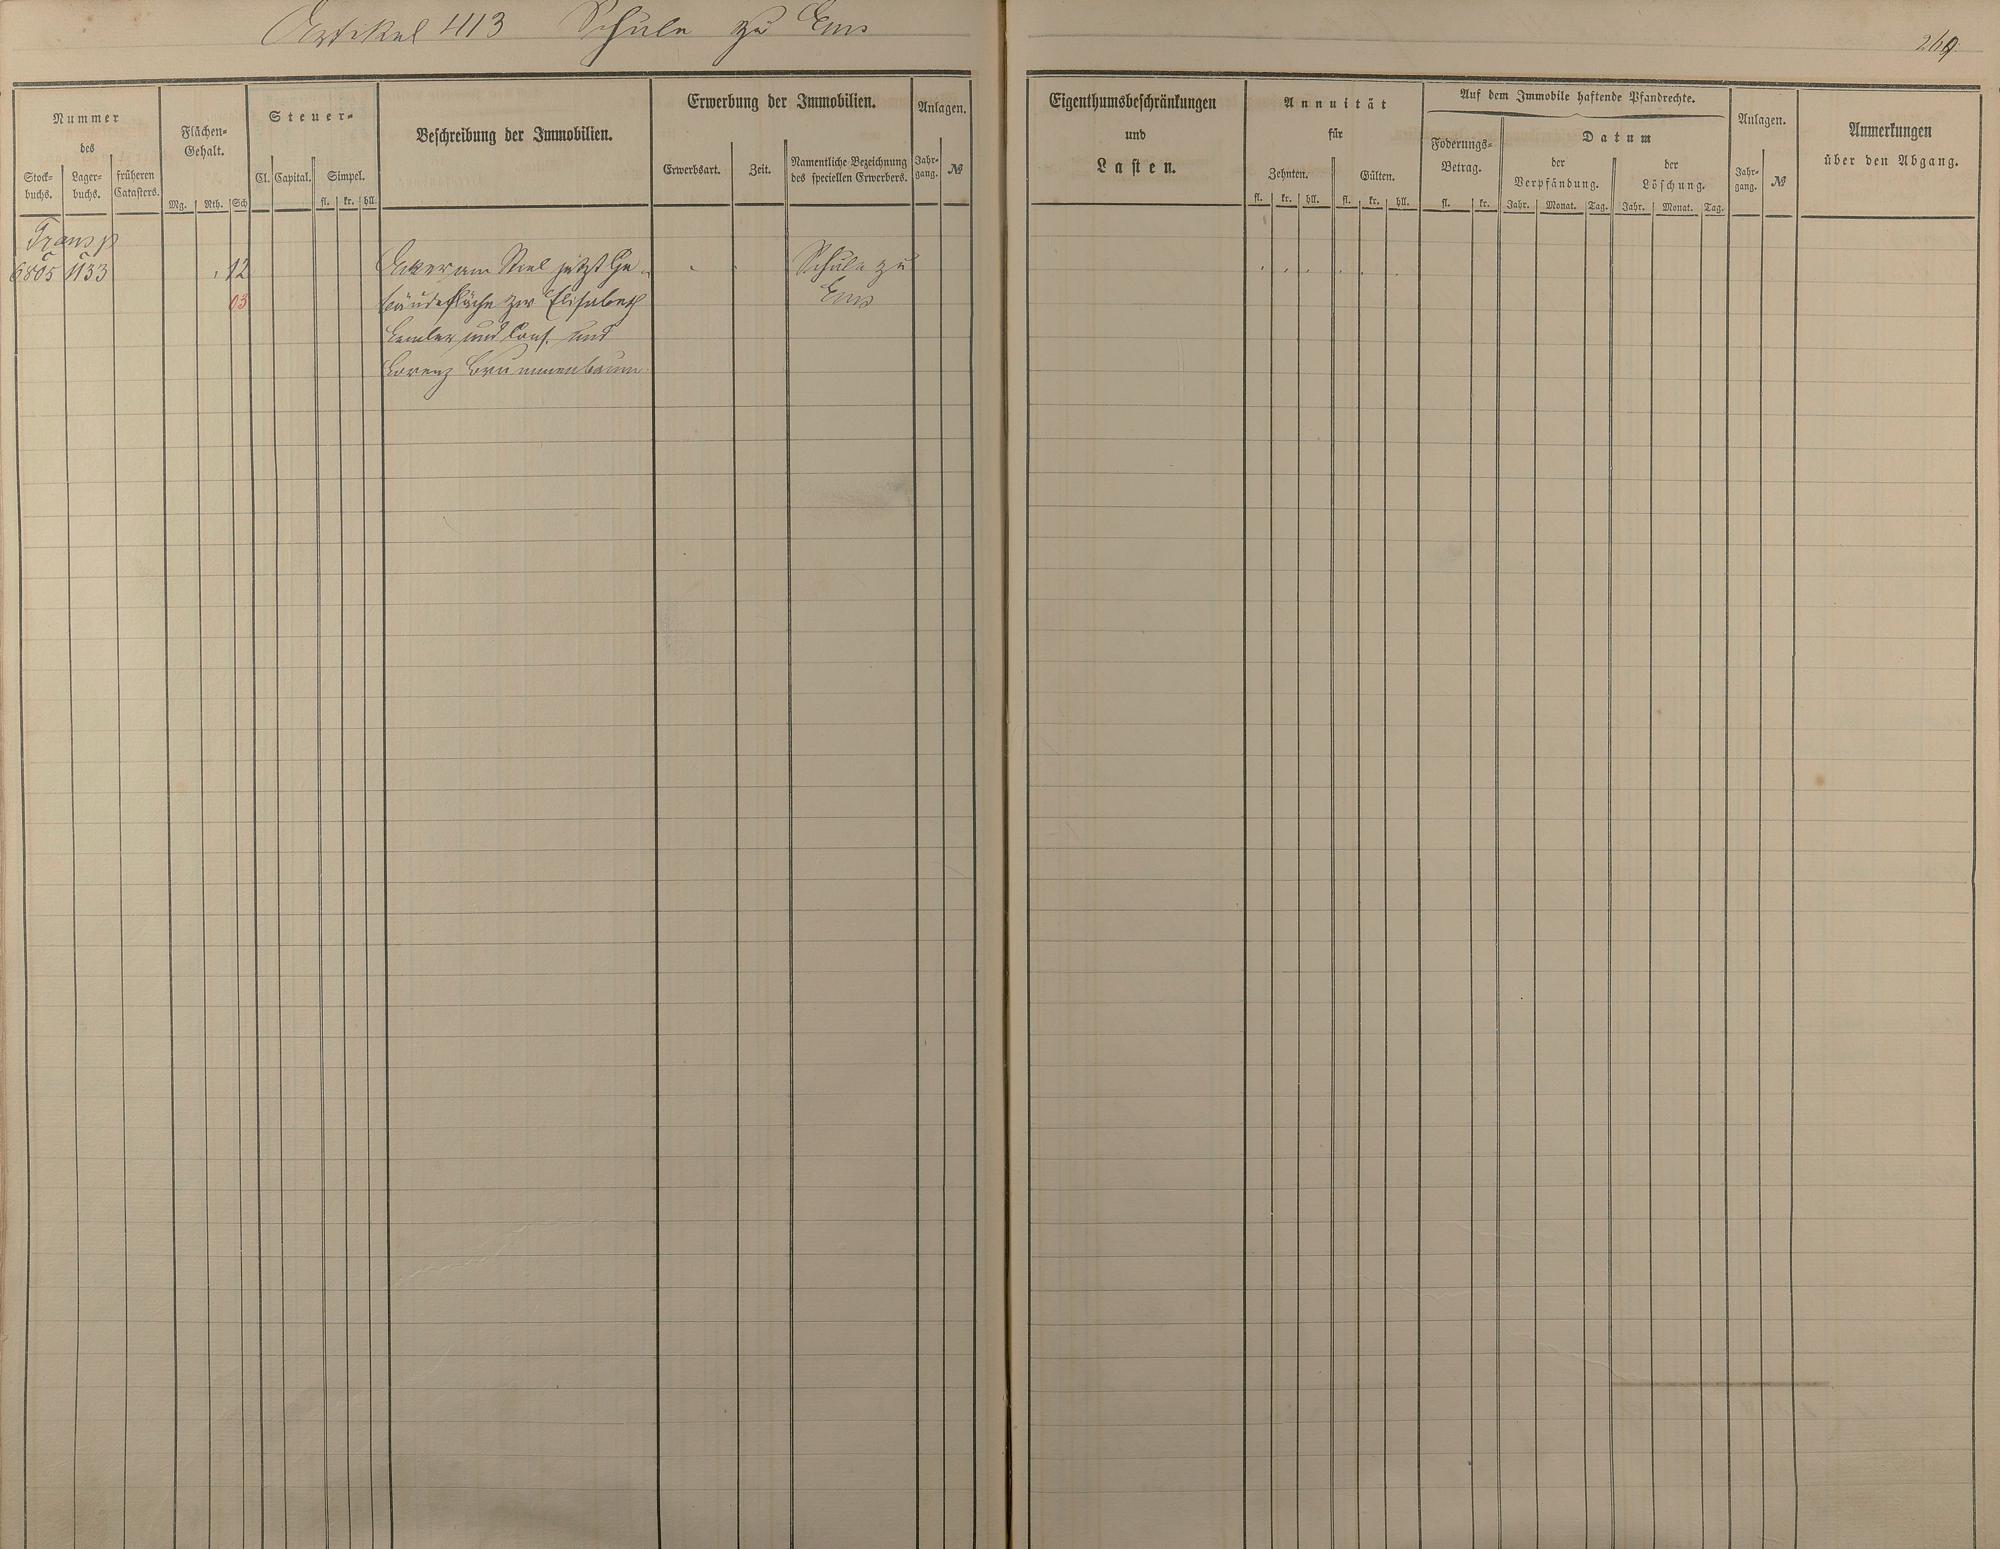 Artikel 413 Schule zu Ems
269
Nummer
des
Stock-
buchs.
Lager-
buchs.
früheren
Catasters.
Flächen-
Gehalt.
Mg. Rth. Sch
Steuer-
Cl. Capital. Simpel.
fl. kr. hll.
Beschreibung der Immobilien.
Erwerbung der Immobilien.
Erwerbsart. Zeit.
Namentliche Bezeichnung
des speciellen Erwerbers.
Anlagen.
Jahr-
gang.
№
Eigenthumsbeschränkungen
und
Lasten.
Annuität
für
Zehnten. Gülten.
fl. kr. hll. fl. kr. hll.
Auf dem Immobile haftende Pfandrechte.
Foderungs-
Betrag.
fl. kr.
Datum
der
Verpfändung.
Jahr. Monat. Tag.
der
Löschung.
Jahr. Monat. Tag.
Anlagen.
Jahr-
gang.
№
Anmerkungen
über den Abgang.
Transp
c c
6805 1133 12 Acker am jetzt Ge- Schule zu
03 bäudefläche zw Elisabeth Ems
und Cons. und
Lorenz Brummenbaum